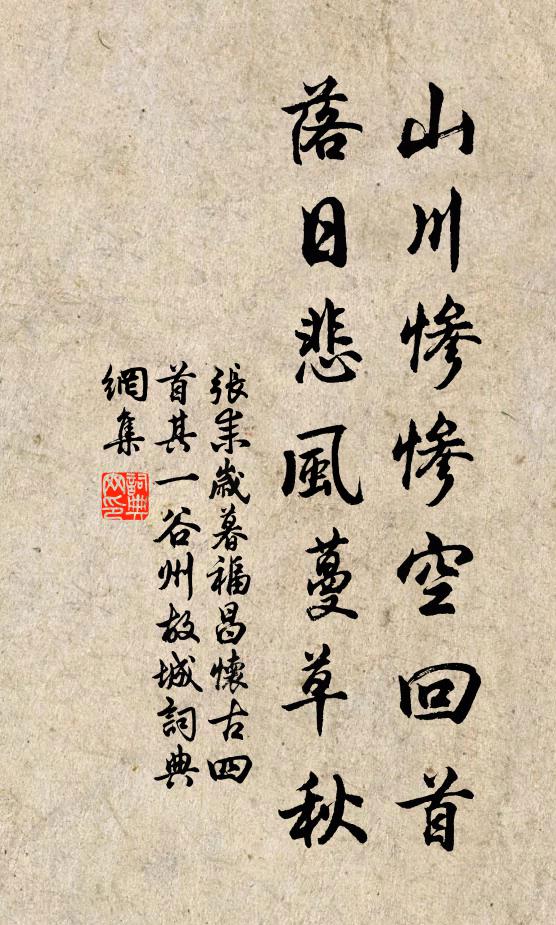 山川慘慘空回首
落日悲風蔓草秋
張耒歲暮福昌懷古四
首其一谷州故城詞典
網集
詞典
網印